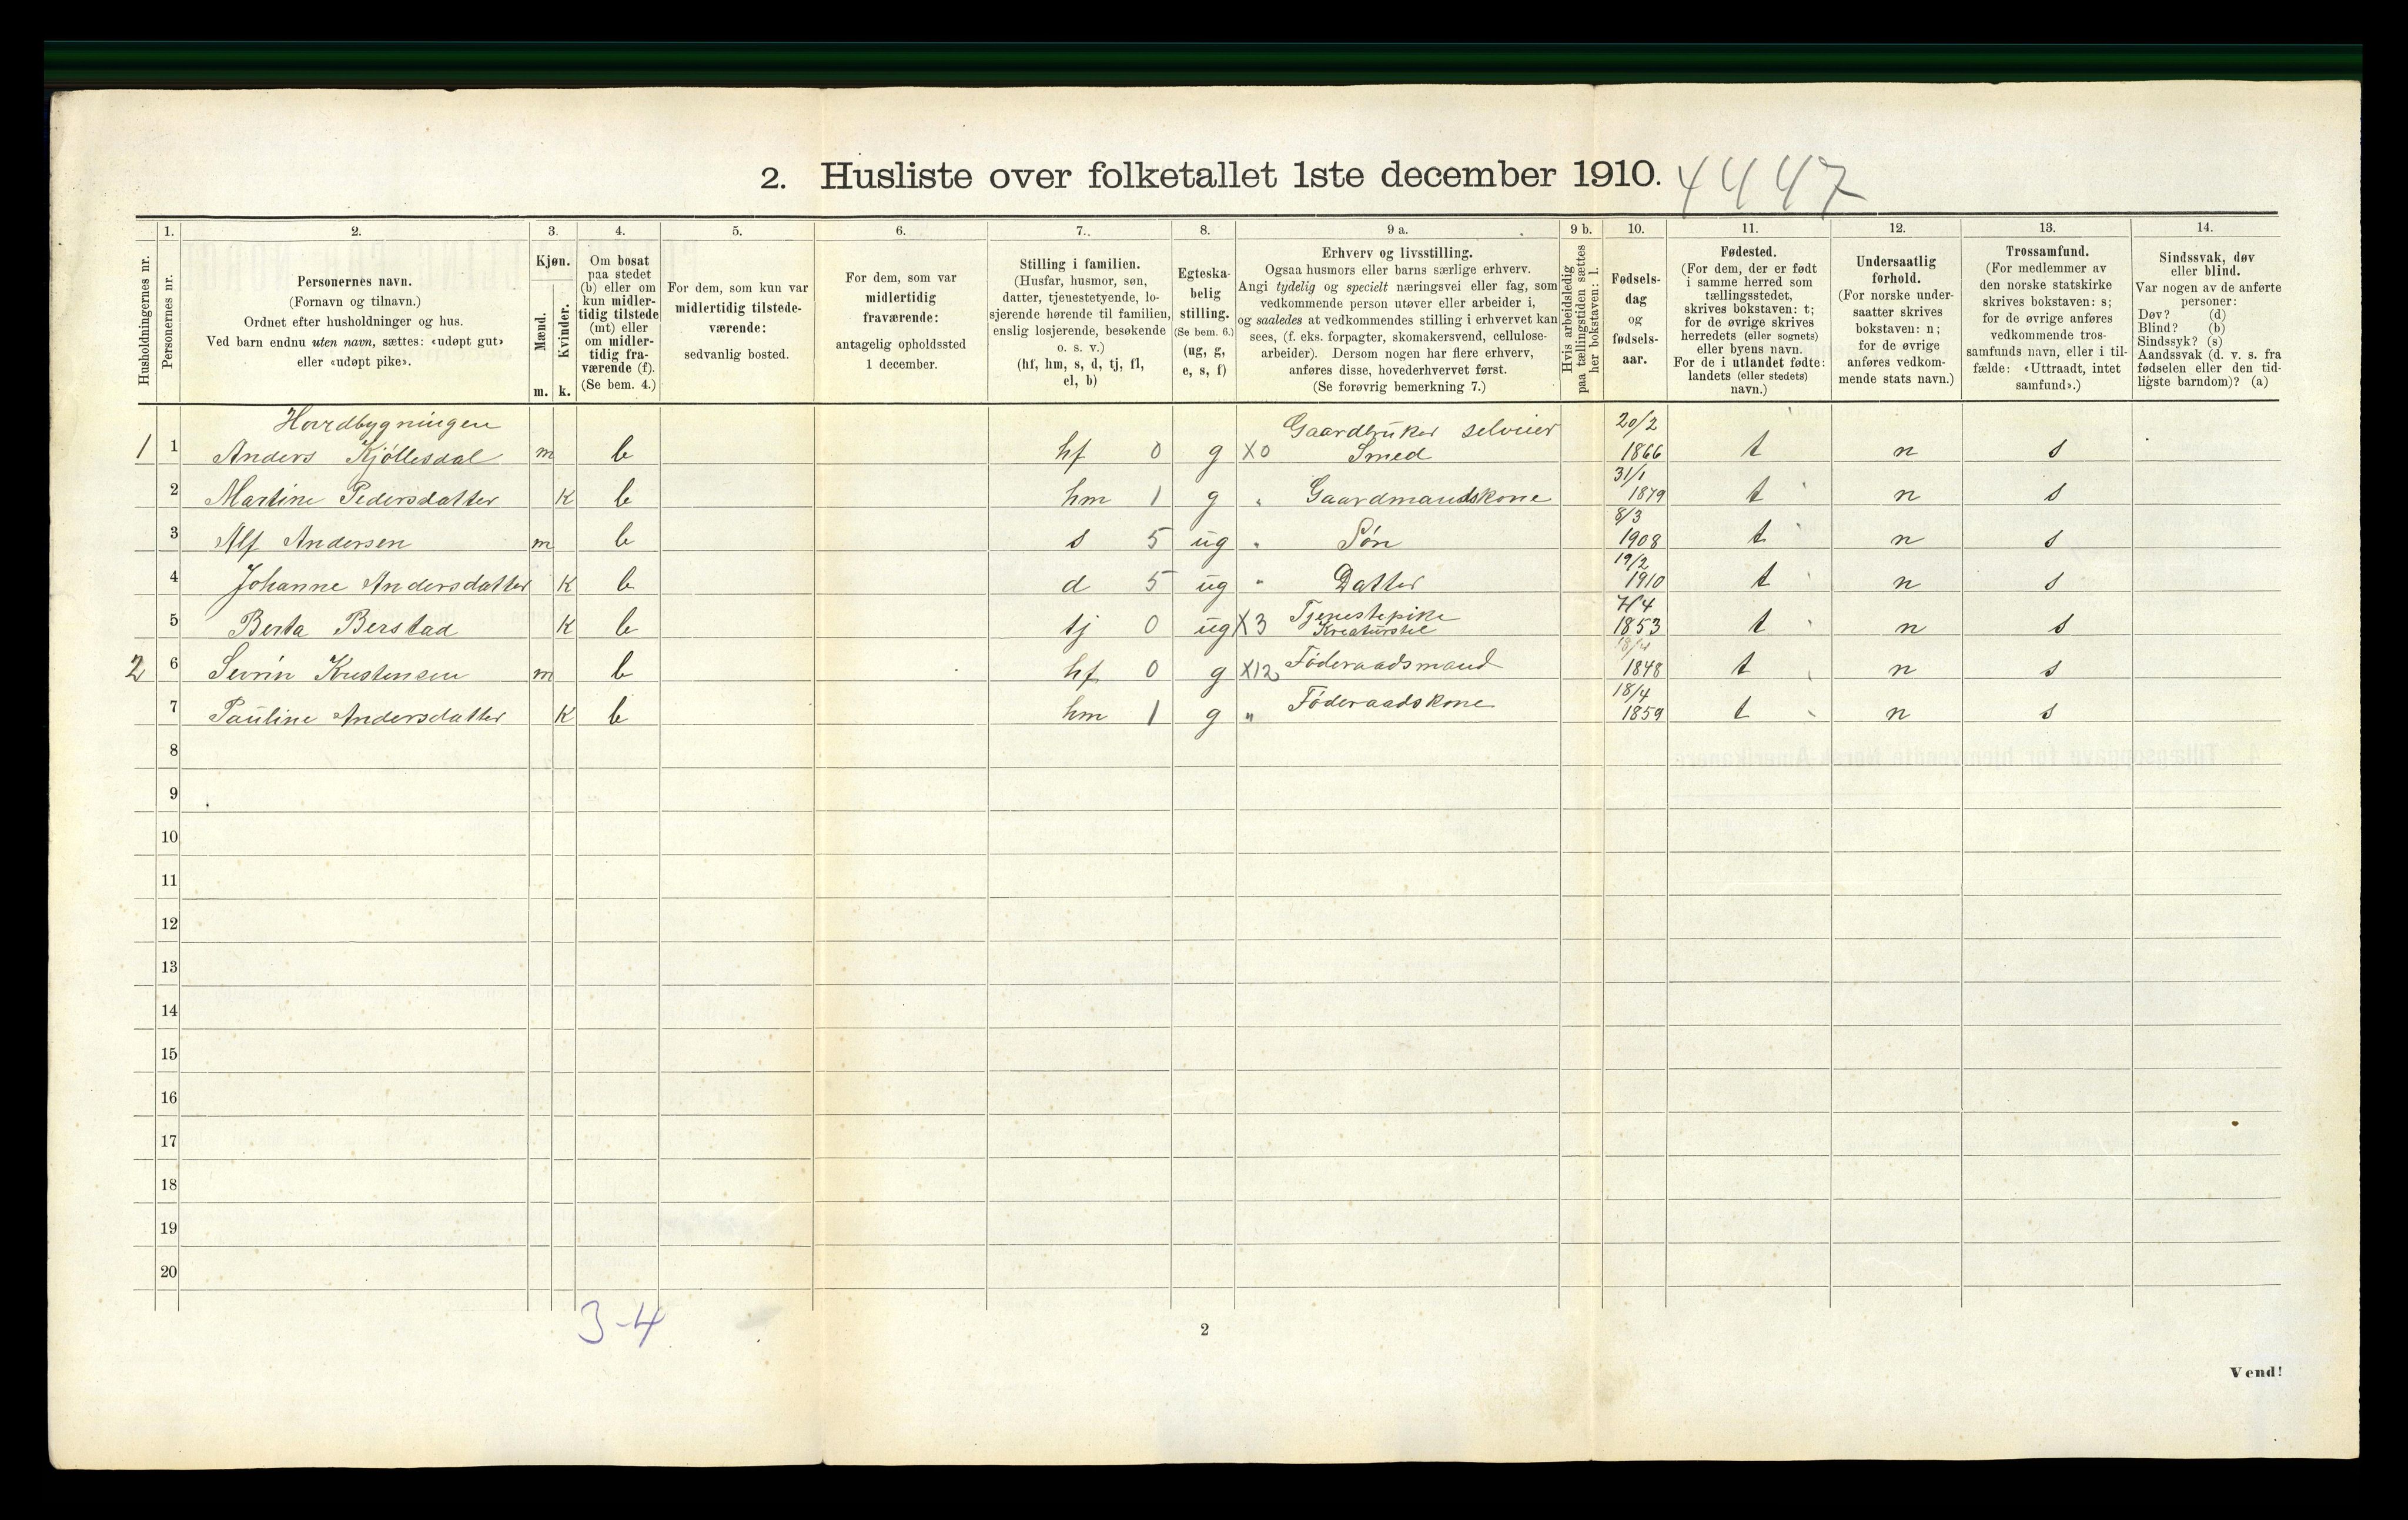 2. Husliste over folketallet 1ste december 1910. 4447
Husholdningernes nr.
1.
Personernes nr.
2.
Personernes navn.
(Fornavn og tilnavn.)
Ordnet efter husholdninger og hus.
Ved barn endnu uten navn, sættes: «udøpt gut»
eller «udøpt pike».
3.
Kjøn.
Mænd.
m.
Kvinder.
k.
4.
Om bosat
paa stedet
(b) eller om
kun midler-
tidig tilstede
(mt) eller
om midler-
tidig fra-
værende (f).
(Se bem. 4.)
5.
For dem, som kun var
midlertidig tilstede-
værende:
sedvanlig bosted.
6.
For dem, som var
midlertidig
fraværende:
antagelig opholdssted
1 december.
7.
Stilling i familien.
(Husfar, husmor, søn,
datter, tjenestetyende, lo-
sjerende hørende til familien,
enslig losjerende, besøkende
o. s. v.)
(hf, hm, s, d, tj, fl,
el, b)
8.
Egteska-
belig
stilling.
(Se bem. 6.)
(ug, g,
e, s, f)
9 a.
Erhverv og livsstilling.
Ogsaa husmors eller barns særlige erhverv.
Angi tydelig og specielt næringsvei eller fag, som
vedkommende person utøver eller arbeider i,
og saaledes at vedkommendes stilling i erhvervet kan
sees, (f. eks. forpagter, skomakersvend, cellulose-
arbeider). Dersom nogen har flere erhverv,
anføres disse, hovederhvervet først.
(Se forøvrig bemerkning 7.)
9 b.
Hvis arbeidsledig
paa tællingstiden sættes
her bokstaven: l.
10.
Fødsels-
dag
og
fødsels-
aar.
11.
Fødested.
(For dem, der er født
i samme herred som
tællingsstedet,
skrives bokstaven: t;
for de øvrige skrives
herredets (eller sognets)
eller byens navn.
For de i utlandet fødte:
landets (eller stedets)
navn.)
12.
Undersaatlig
forhold.
(For norske under-
saatter skrives
bokstaven: n;
for de øvrige
anføres vedkom-
mende stats navn.)
13.
Trossamfund.
(For medlemmer av
den norske statskirke
skrives bokstaven: s;
for de øvrige anføres
vedkommende tros-
samfunds navn, eller i til-
fælde: «Uttraadt, intet
samfund».)
14.
Sindssvak, døv
eller blind.
Var nogen av de anførte
personer:
Døv? (d)
Blind? (b)
Sindssyk? (s)
Aandssvak (d. v. s. fra
fødselen eller den tid-
ligste barndom)? (a)
Hovedbygningen Gaardbruker selveier 20/2
1 1 Anders Kjöllesdal m b hf 0 g X0 Smed 1866 t n s
31/1
2 Martine Pedersdatter K b hm 1 g " Gaardmandskone 1879 t n s
8/3
3 Alf Andersen m b s 5 ug " Sön 1908 t n s
19/2
4 Johanne Andersdatter K b d 5 ug " Datter 1910 t n s
Tjenestepike
5 Berta Berstad K b tj 0 ug X3 Kreaturstel 1853 t n s
2 6 Sevrin Kristensen m b hf 0 g X12 Föderaadsmand 1848 t n s
18/4
7 Pauline Andersdatter K b hm 1 g " Föderaadskone 1859 t n s
8
9
10
11
12
13
14
15
16
17
18
19
20
3-4
2
Vend!